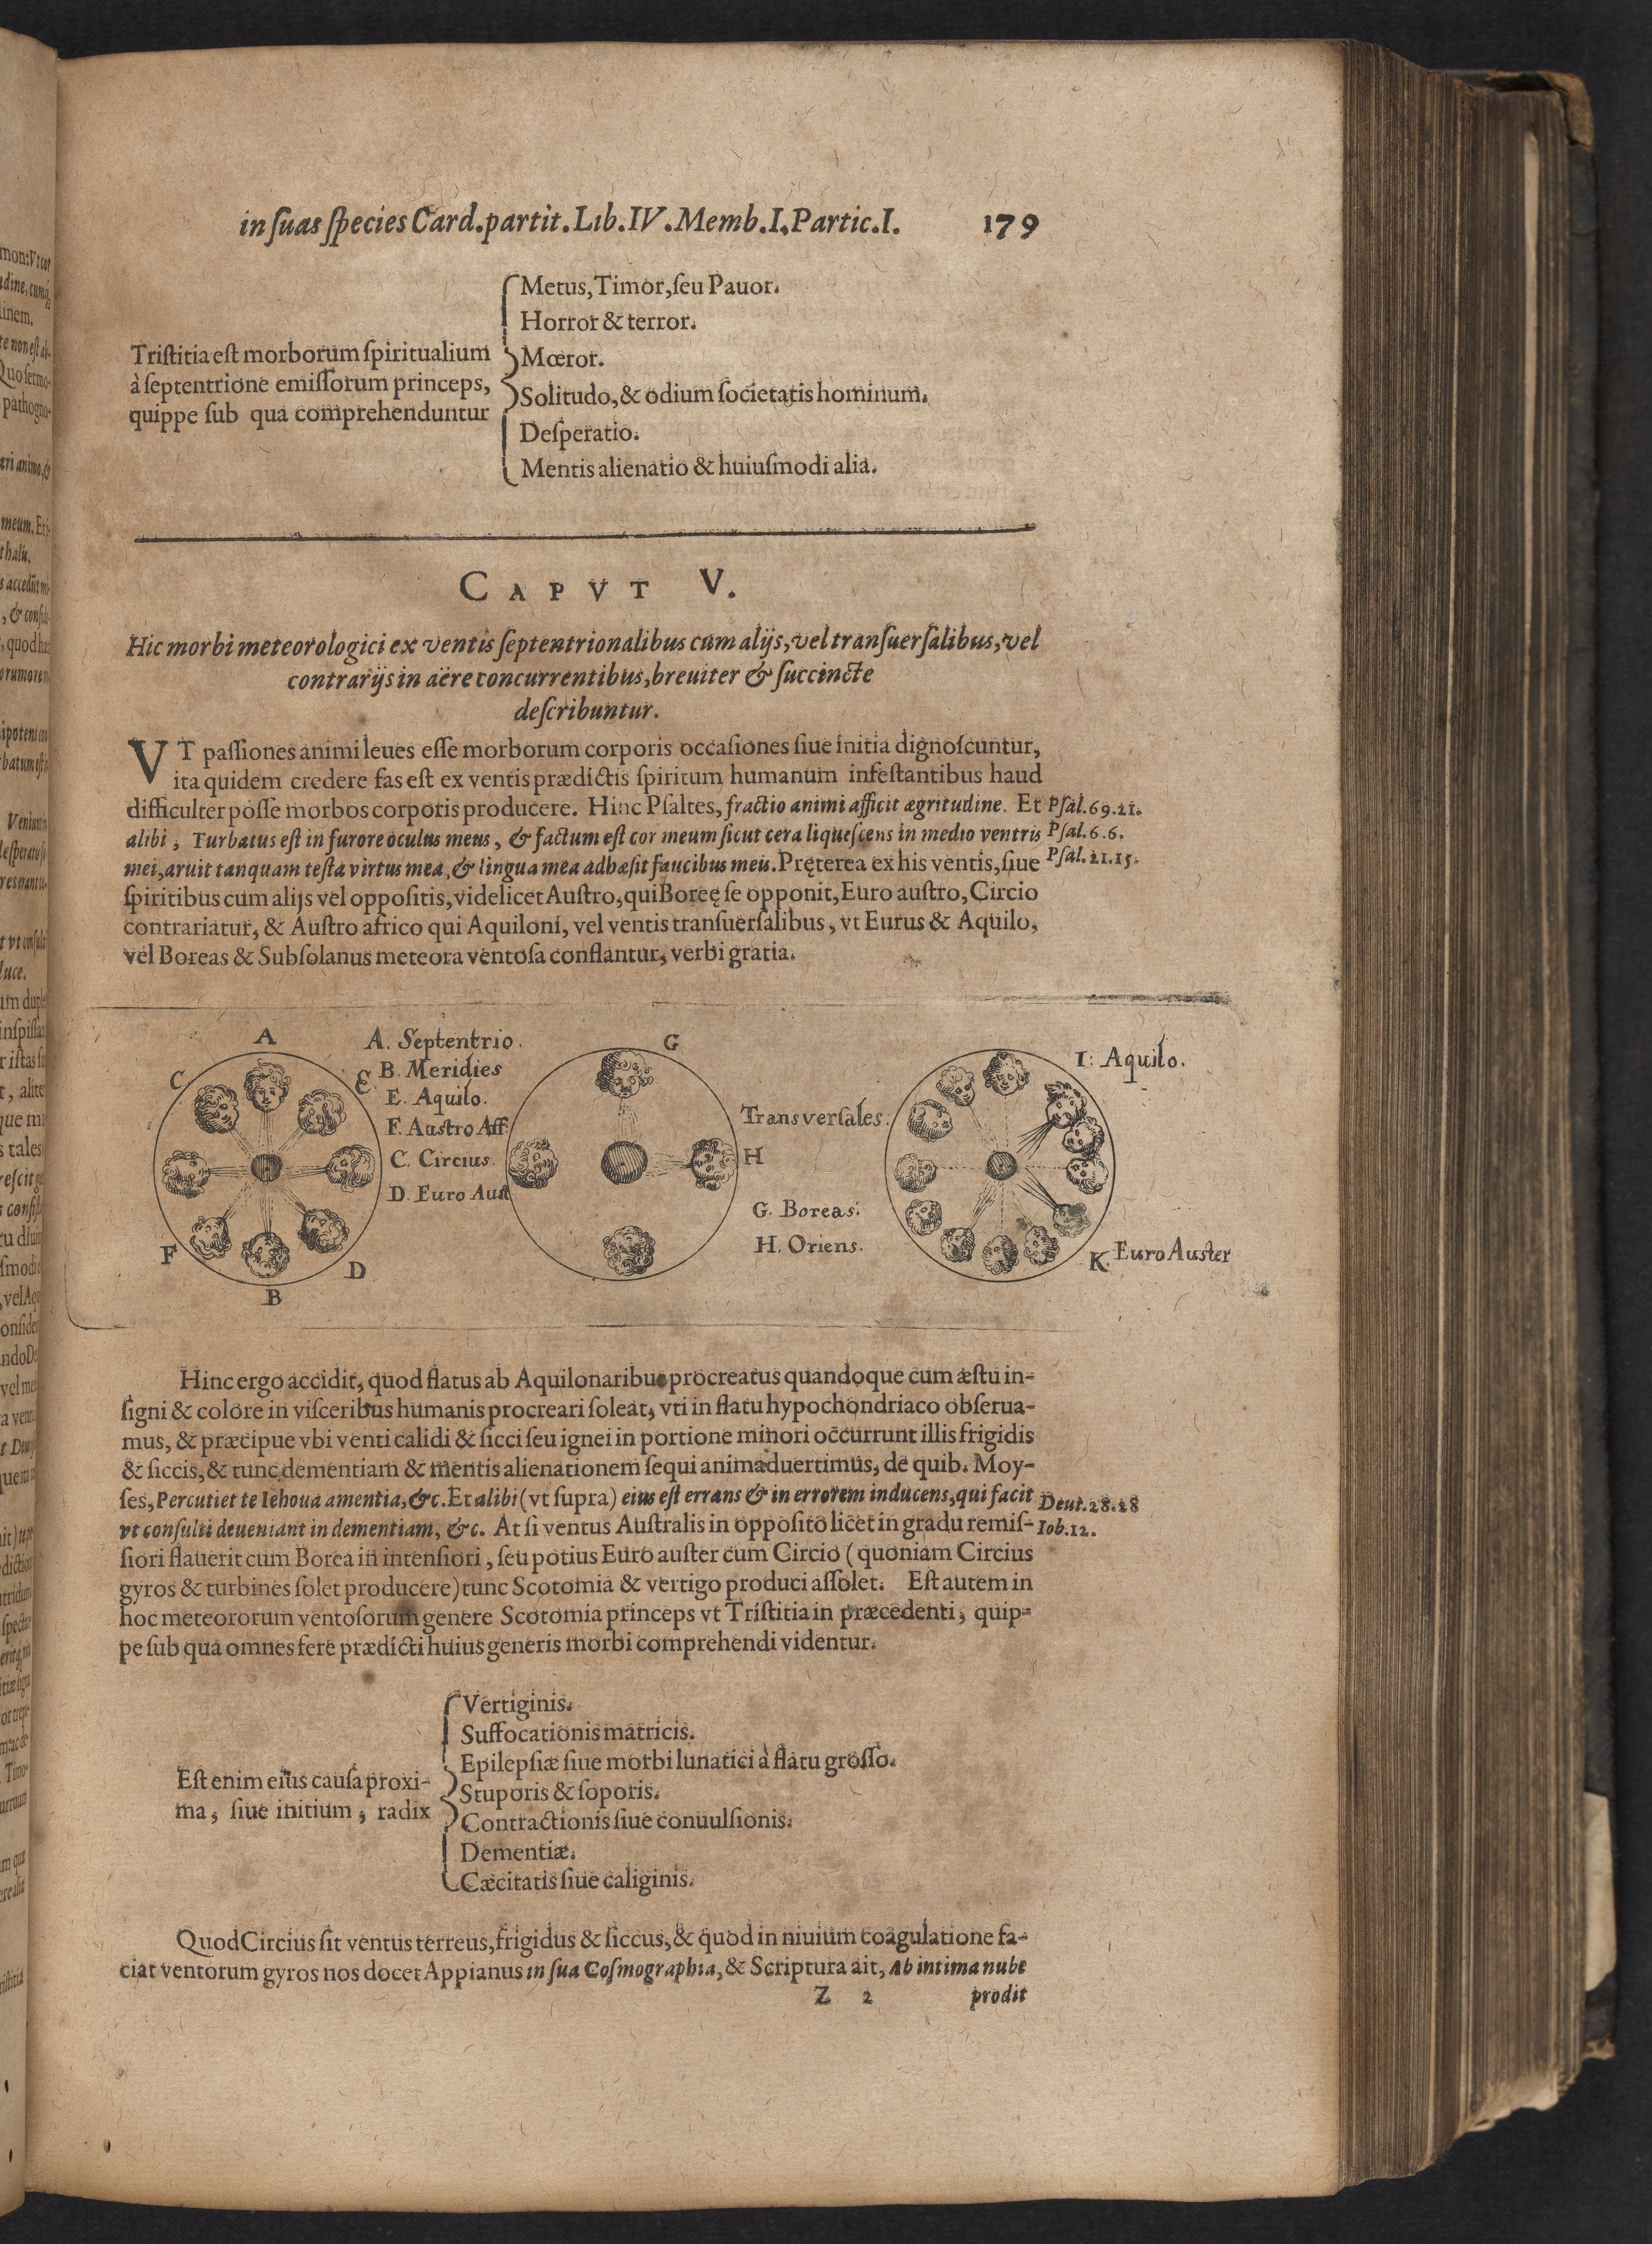 in ſuas ſpecies Card.partit.Lib.IV.Memb.I.Partic.I. 179
Metus,Timor,ſeu Pauor.
Horror & terror.
Triſtitia eſt morborum ſpiritualium
à ſeptentrione emiſſorum princeps,
quippe ſub qua comprehenduntur
Mœror.
Solitudo,& odium ſocietatis hominum.
Deſperatio.
Mentis alienatio & huiuſmodi alia.
CAPVT V.
Hic morbi meteorologici ex ventis ſeptentrionalibus cum alijs,vel tranſuerſalibus,vel
contrarijs in aëre concurrentibus,breuiter & ſuccincte
deſcribuntur.
VT paſſiones animi leues eſſe morborum corporis occaſiones ſiue initia dignoſcuntur,
ita quidem credere fas eſt ex ventis prædictis ſpiritum humanum infeſtantibus haud
difficulter poſſe morbos corporis producere. Hinc Pſaltes, fractio animi afficit ægritudine. Et Pſal.69.21.
alibi, Turbatus eſt in furore oculus meus, & factum eſt cor meum ſicut cera liqueſcens in medio ventris Pſal.6.6.
mei,aruit tanquam teſta virtus mea,& lingua mea adhæſit faucibus meis. Pręterea ex his ventis,ſiue Pſal.21.15.
ſpiritibus cum alijs vel oppoſitis,videlicet Auſtro,qui Boreę ſe opponit,Euro auſtro,Circio
contrariatur, & Auſtro africo qui Aquiloni, vel ventis tranſuerſalibus, vt Eurus & Aquilo,
vel Boreas & Subſolanus meteora ventoſa conflantur, verbi gratia.
A
C
E
F
D
B
A. Septentrio.
B. Meridies
E. Aquilo.
F. Auſtro Aff:
C. Circius.
D. Euro Auſt
G
H
Transverſales.
G. Boreas.
H. Oriens.
I: Aquilo.
K. Euro Auster
Hinc ergo accidit, quod flatus ab Aquilonaribus procreatus quandoque cum æſtu in-
ſigni & colore in viſceribus humanis procreari ſoleat, vti in flatu hypochondriaco obſerua-
mus, & præcipue vbi venti calidi & ſicci ſeu ignei in portione minori occurrunt illis frigidis
& ſiccis,& tunc dementiam & mentis alienationem ſequi animaduertimus, de quib. Moy-
ſes,Percutiet te Iehoua amentia,&c.Et alibi (vt ſupra) eius eſt errans & in errorem inducens,qui facit Deut.28.28
vt conſulti deueniant in dementiam, &c. At ſi ventus Auſtralis in oppoſito licet in gradu remiſ- Iob.12.
ſiori flauerit cum Borea in intenſiori, ſeu potius Euro auſter cum Circio (quoniam Circius
gyros & turbines ſolet producere) tunc Scotomia & vertigo produci aſſolet. Eſt autem in
hoc meteororum ventoſorum genere Scotomia princeps vt Triſtitia in præcedenti, quip-
pe ſub qua omnes fere prædicti huius generis morbi comprehendi videntur.
Vertiginis.
Suffocationis matricis.
Epilepſiæ ſiue morbi lunatici à flatu groſſo.
Eſt enim eius cauſa proxi-
ma, ſiue initium, radix
Stuporis & ſoporis.
Contractionis ſiue conuulſionis.
Dementiæ.
Cæcitatis ſiue caliginis.
Quod Circius ſit ventus terreus,frigidus & ſiccus,& quod in niuium coagulatione fa-
ciat ventorum gyros nos docet Appianus in ſua Coſmographia,& Scriptura ait, Ab intima nube
Z 2 prodit